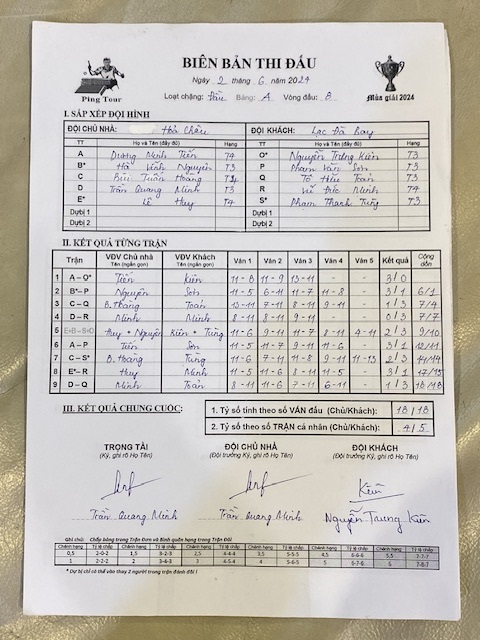 BIÊN BẢN THI ĐẤU
Ngày 2 tháng 6 năm 2024
Ping Tour
Loại chặng: Đấu Bảng: A Vòng đấu: 8
Mùa giải 2024
I. SẮP XẾP ĐỘI HÌNH
ĐỘI CHỦ NHÀ: Hải Châu ĐỘI KHÁCH: Lạc Đà bay
TT Họ và Tên (đầy đủ) Hạng TT Họ và Tên (đầy đủ) Hạng
A Dương Minh Tiến T4 O* Nguyễn Trung Kiên T3
B* Hà Vĩnh Nguyên T3 P Phạm Văn Sơn T3
C Bùi Tuấn Hoàng Q Tô Hữu Toản T3
D Trần Quang Minh T3 R Vũ Đức Minh T4
E* Lê Huy T4 S* Phạm Thanh Tùng T3
Dự bị 1 Dự bị 1
Dự bị 2 Dự bị 2
II. KẾT QUẢ TỪNG TRẬN
Trận VĐV Chủ nhà Tên (ngắn gọn) VĐV Khách Tên (ngắn gọn) Ván 1 Ván 2 Ván 3 Ván 4 Ván 5 Kết quả Cộng dồn
1 A – O* Tiến Kiên 11 - 8 11 - 9 13 - 11 - - 3 / 0
2 B* – P Nguyên Sơn 11 - 5 6 - 11 11 - 7 11 - 8 - 3 / 1 6/1
3 C – Q B. Hoàng Toản 13 - 11 7 - 11 8 - 11 9 - 11 - 1 / 3 7/4
4 D – R Minh Minh 8 - 11 8 - 11 9 - 11 - - 0 / 3 7/7
5 E+B – S+O Huy + Nguyên Kiên + Tùng 11 - 6 9 - 11 11 - 7 8 - 11 4 - 11 2 / 3 9/10
6 A – P Tiến Sơn 11 - 5 11 - 7 9 - 11 11 - 6 - 3 / 1 12/11
7 C – S* B. Hoàng Tùng 11 - 6 7 - 11 11 - 8 9 - 11 11 - 13 2 / 3 14/14
8 E* – R Huy Minh 11 - 5 11 - 6 9 - 11 11 - 7 - 3 / 1 17/15
9 D – Q Minh Toản 8 - 11 11 - 6 7 - 11 6 - 11 - 1 / 3 18/18
III. KẾT QUẢ CHUNG CUỘC:
1. Tỷ số tính theo số VÁN đấu (Chủ/Khách): 18 / 18
2. Tỷ số theo số TRẬN cá nhân (Chủ/Khách): 4 / 5
TRỌNG TÀI ĐỘI CHỦ NHÀ ĐỘI KHÁCH
(Ký, ghi rõ Họ Tên) (Đội trưởng Ký, ghi rõ Họ Tên) (Đội trưởng Ký, ghi rõ Họ Tên)
Kiên
Trần Quang Minh Trần Quang Minh Nguyễn Trung Kiên
Ghi chú: Chấp bóng trong Trận Đơn và Bình quân hạng trong Trận Đôi
Chênh hạng Tỷ lệ chấp Chênh hạng Tỷ lệ chấp Chênh hạng Tỷ lệ chấp Chênh hạng Tỷ lệ chấp Chênh hạng Tỷ lệ chấp Chênh hạng Tỷ lệ chấp
0,5 2-0-2 1,5 3-2-3 2,5 4-4-4 3,5 5-5-5 4,5 6-6-6 5,5 7-7-7
1 2-2-2 2 3-4-3 3 4-5-4
* Dự bị chỉ có thể vào thay 2 người trong trận đánh đôi !